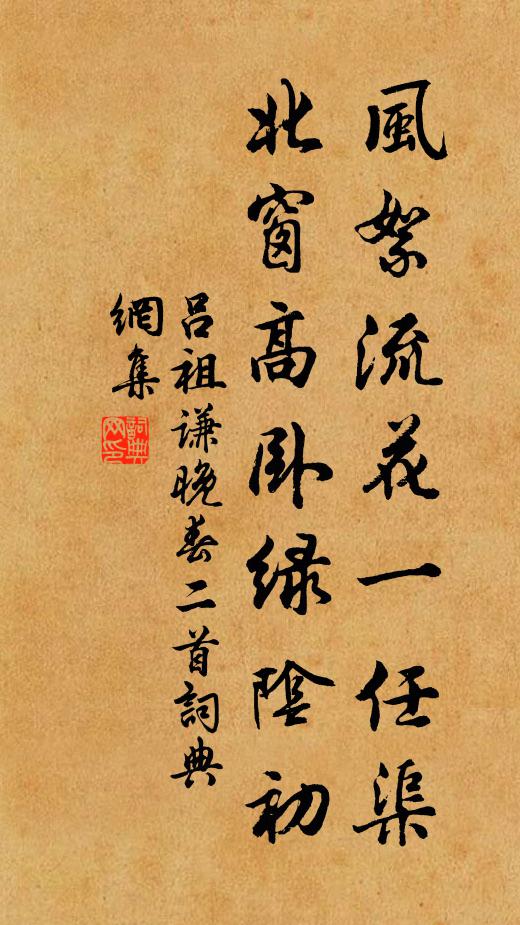 風絮流花一任渠
北窗高卧緑陰初
呂祖謙晚春二首詞典
網集
詞典
网印